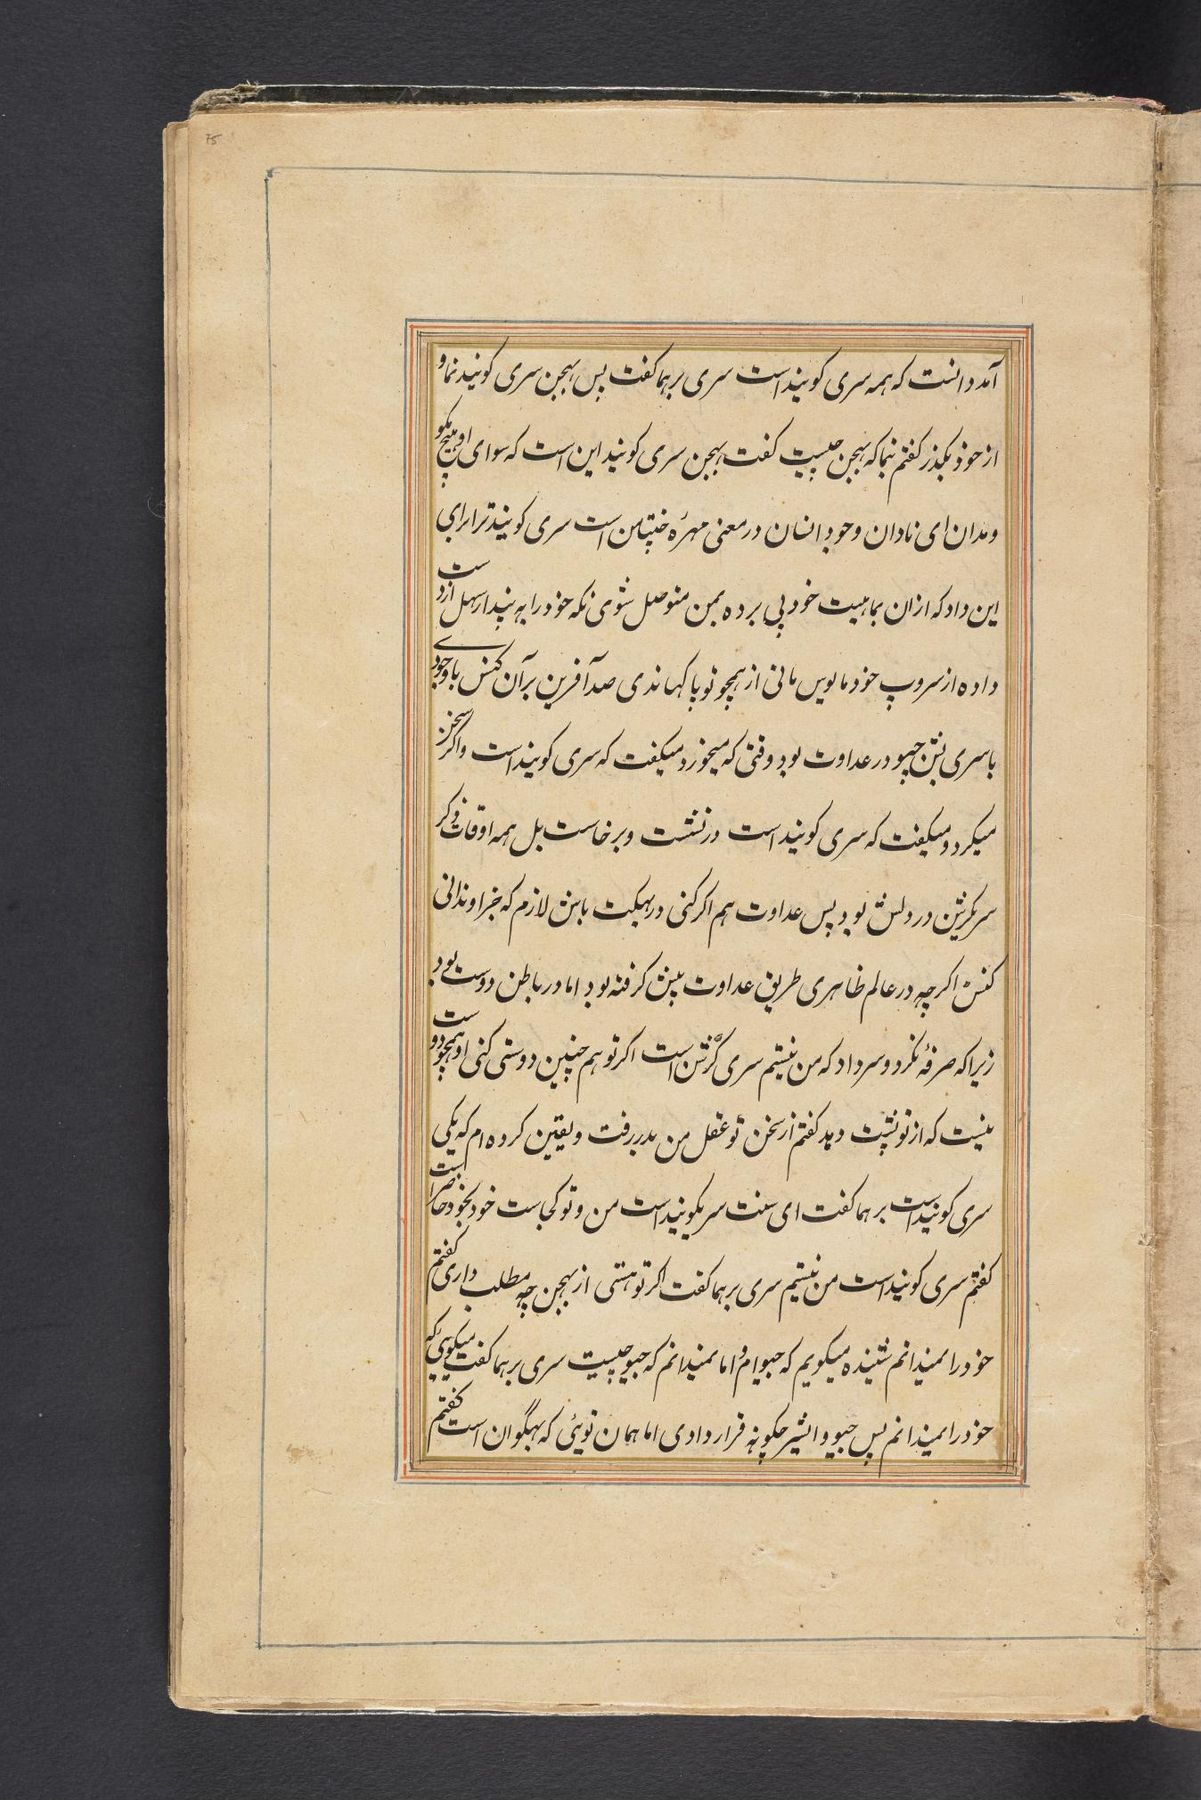 75
آمد دانست که همه سری کوبیند است سری برهما کفت پس بهجن سری کوبیند نما و
از خود بکذر کفتم نیما که بهجن چیست کفت بهجن سری کوبیند این است که سوای او هیچ مکو
و مدان ای نادان وجود انسان در معنی مهره است سری کوبیند ترا برای
این داد که ازان بماهیت خود پی برده بمن متوصل شوی نکه خود را به پندار سهل از دست
داده از سروپ خود مایوس مانی از همچو تو پا کهاندی صد آفرین بر آن کنس با وجودی
با سری بشن جیو در عداوت بود وقتی که میخورد میکفت که سری کوبیند است واکر سخن
میکرد و میکفت که سری کوبیند است در نشست و برخاست بل همه اوقات ذکر
سریکرشن در دلش بود پس عداوت هم اکر کنی در بهکت باش لازم که جز او ندانی
کنس اکرچه در عالم ظاهری طریق عداوت پیش کرفته بود اما در باطن دوست بود
زیراکه صرفهٔ نکرد و سر داد که من نیستم سری کرشن است اکر تو هم چنین دوستی کنی او همچو دوست
نیست که از تو پشت دهد کفتم از سخن تو عقل من بدر رفت و یقین کرده ام که یکی
سری کوبیند است برهما کفت ای سنت سریکوبیند است من و تو کجاست خود بخود حاضر است
کفتم سری کوبیند است من نیستم سری برهما کفت اکر تو هستی از بهجن چه مطلب داری کفتم
خود را نمیدانم شنیده میکویم که جیوام و اما نمیدانم که جیو چیست سری برهما کفت میکویی که
خود را نمیدانم پس جیو و ایشر چکونه قرار دادی اما همان تویی که بهگوان است کفتم